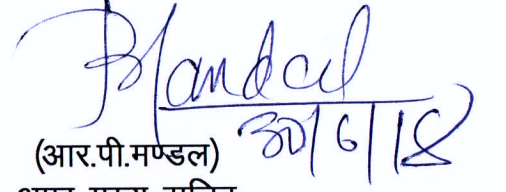 Mandal
30/6/18
(आर.पी.मण्डल)